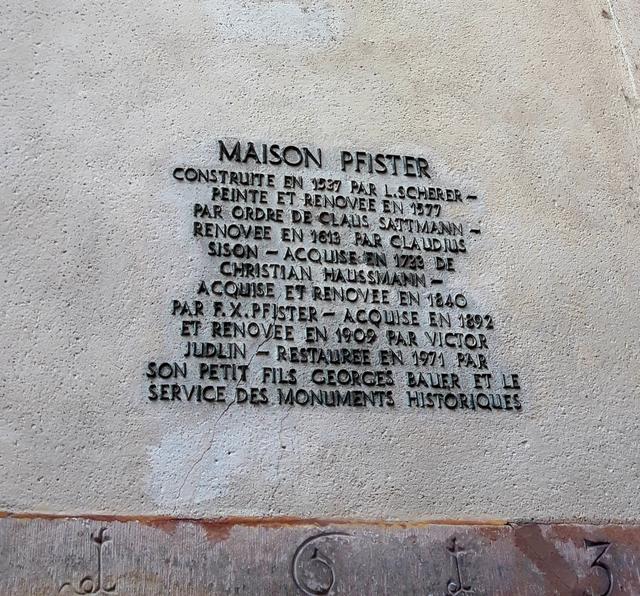 MAISON PFISTER
CONSTRUITE EN 1537 PAR L.SCHERER –
PEINTE ET RENOVEE EN 1577
PAR ORDRE DE CLAUS SATTMANN –
RENOVEE EN 1613 PAR CLAUDIUS
SISON – ACQUISE EN 1733 DE
CHRISTIAN HAUSSMANN –
ACQUISE ET RENOVEE EN 1840
PAR F.X.PFISTER – ACQUISE EN 1892
ET RENOVEE EN 1909 PAR VICTOR
JUDLIN – RESTAUREE EN 1971 PAR
SON PETIT FILS GEORGES BAUER ET LE
SERVICE DES MONUMENTS HISTORIQUES
1 6 1 3